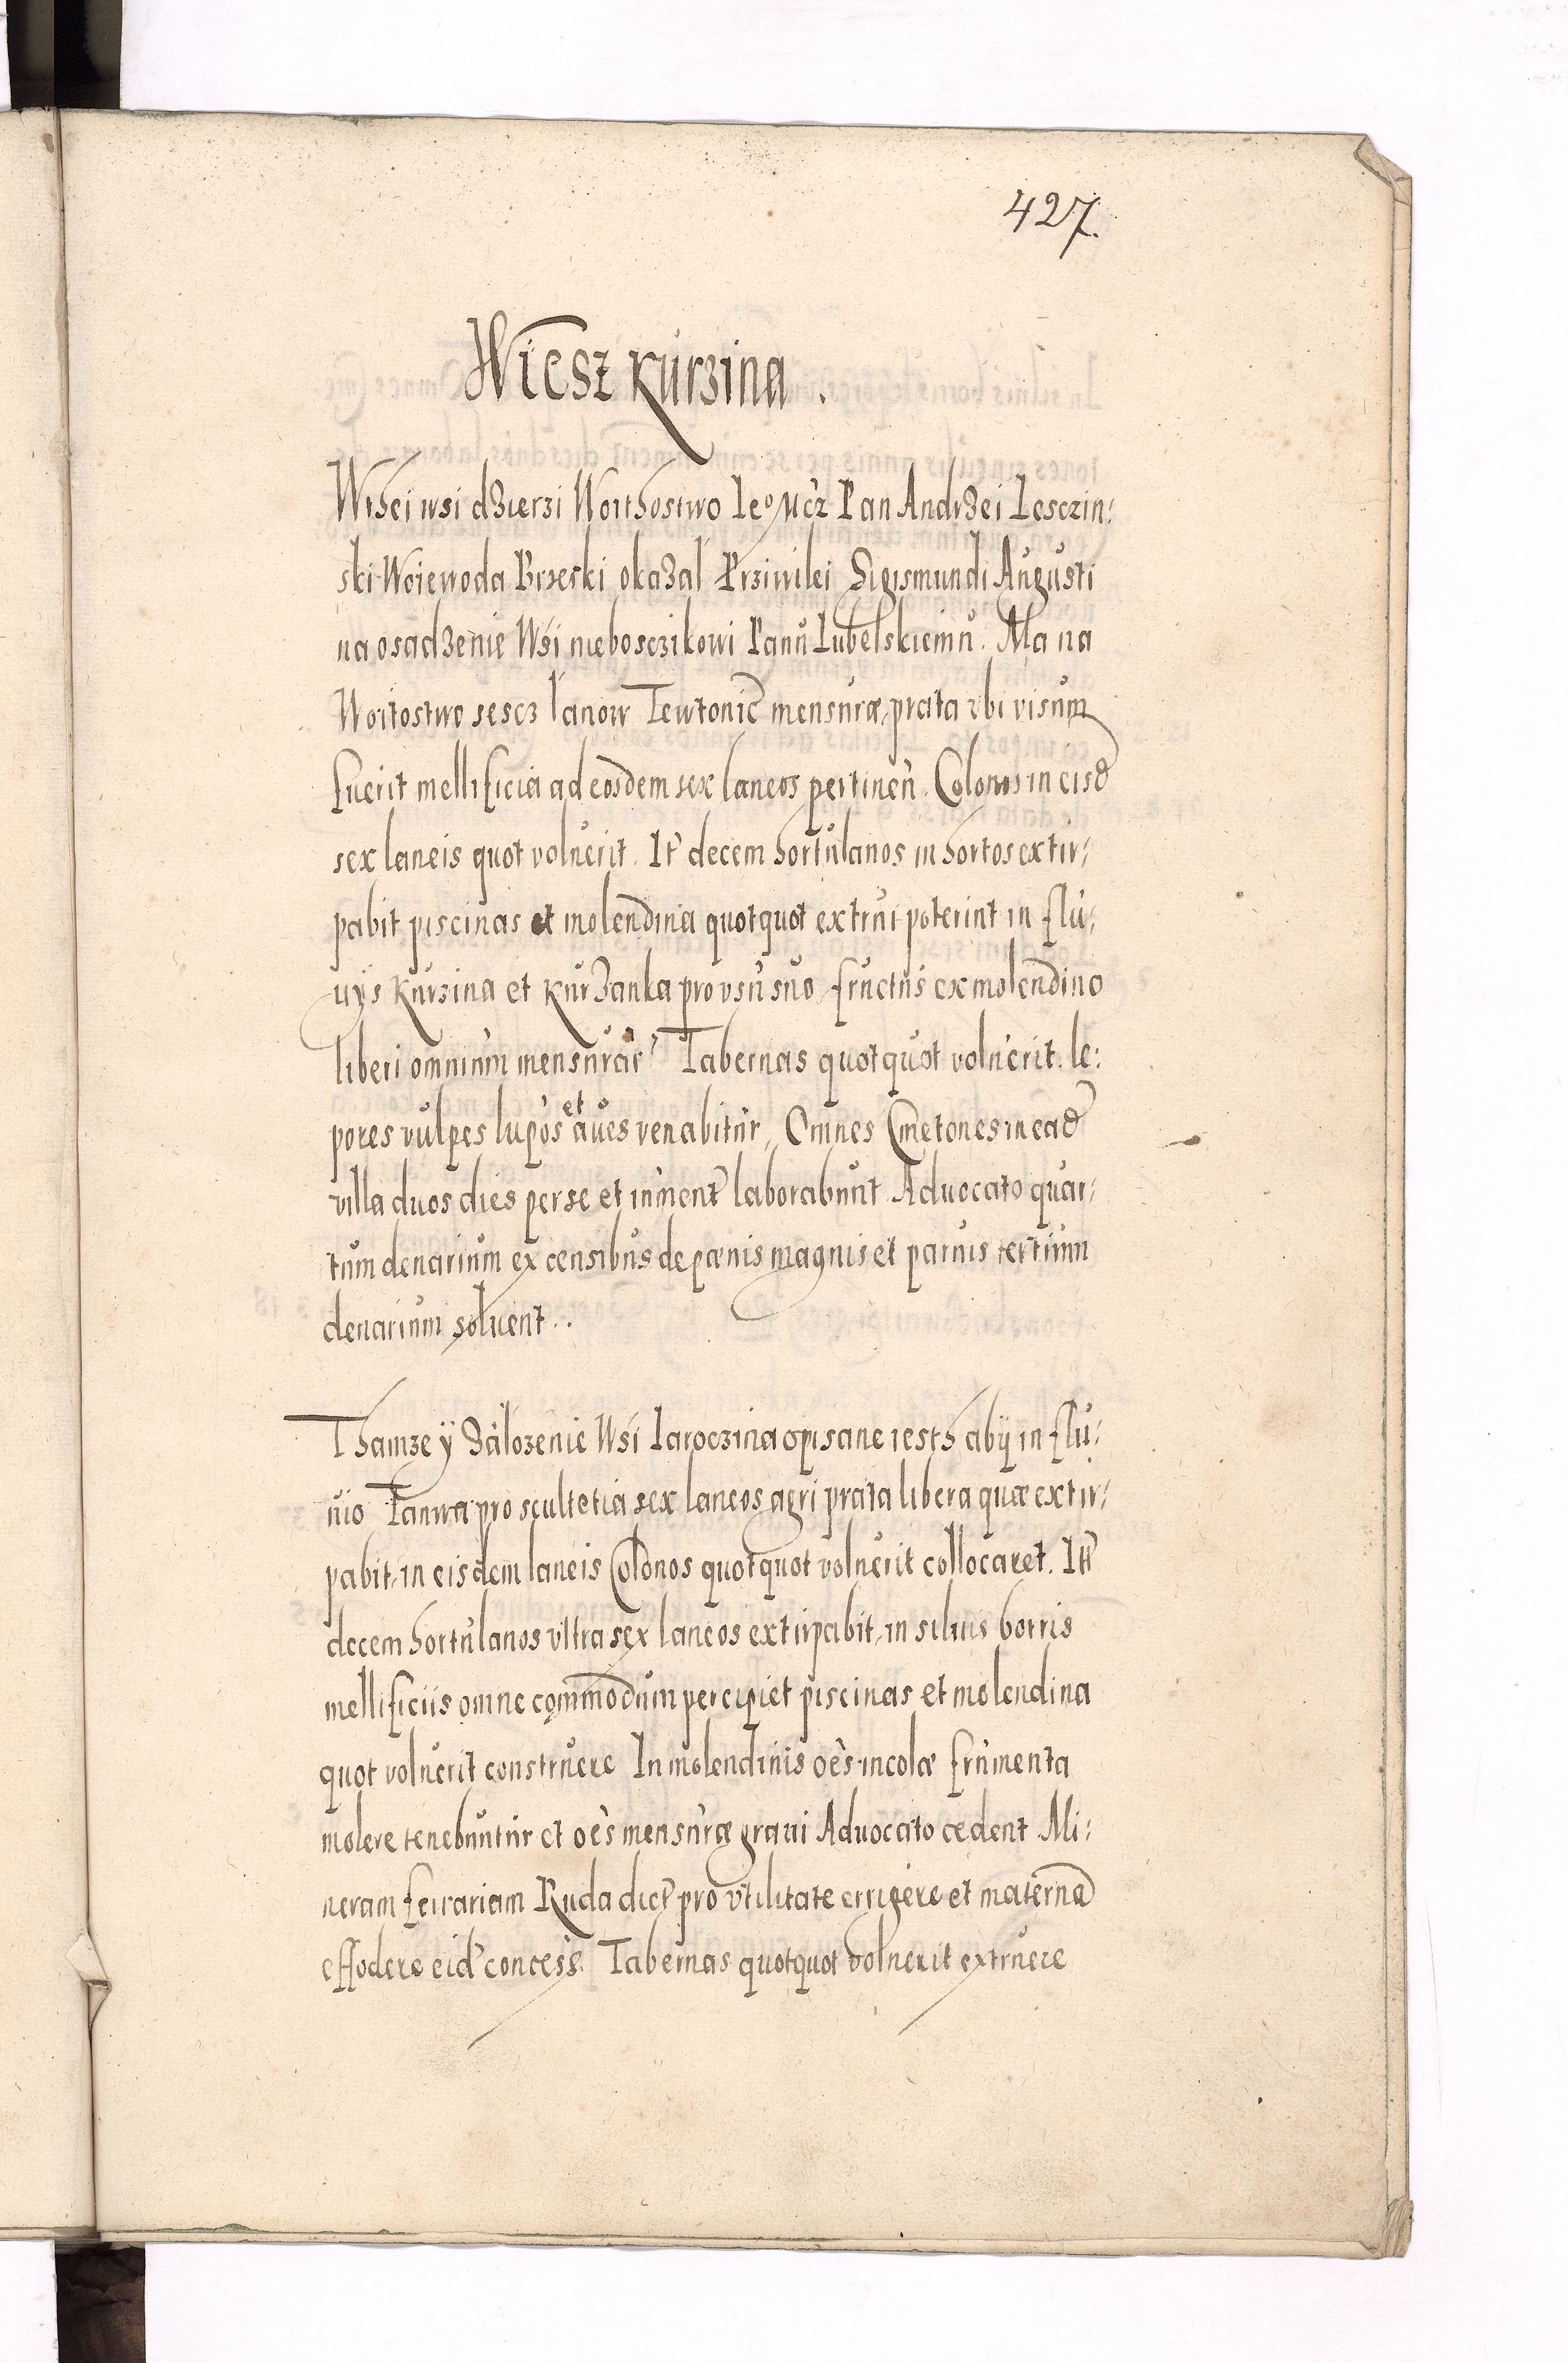 427.
Wiesz Kurzina.
Wthei wsi dzierzi Woithostwo Ieº Mcz Pan Andrzei Lesczin:
ski Woiewoda Brzeski okazal Prziwilei Sigismundi Augusti
na osadzenie Wsi nieboszczikowi Panu Lubelskiemu. Ma na
Woitostwo sescz lanow Tewtonic mensuræ, prata vbi visum
fuerit mellificia ad eosdem sex laneos pertinen. Colonos in eisd
sex laneis quot voluerit. It decem hortulanos in hortos extir:
pabit piscinas et molendina quotquot extrui poterint in flu:
uÿs Kurzina et Kurzanka pro vsu suo fructus ex molendino
liberi omnium mensurar Tabernas quotquot voluerit. le:
pores vulpes lupos et aues venabitur, Omnes Cmetones in ead
villa duos dies per se et iument laborabunt. Aduocato quar:
tum denarium ex censibus de pœnis magnis et paruis tertium
denarium soluent..
Thamze ÿ Zalozenie Wsi Iaroczina opisane iesth abÿ in flu:
uio Tanwa pro scultetia sex laneos agri prata libera quæ extir:
pabit, in eisdem laneis Colonos quotquot voluerit collocaret. Itt
decem hortulanos vltra sex laneos extirpabit, in siluis borris
mellificiis omne commodum percipiet piscinas et molendina
quot voluerit construere In molendinis oes incolæ frumenta
molere tenebuntur et oes mensuræ graui Aduocato cedent Mi:
neram ferrariam Ruda dict pro vtilitate errigere et materna
effodere eid concess. Tabernas quotquot voluerit extruere